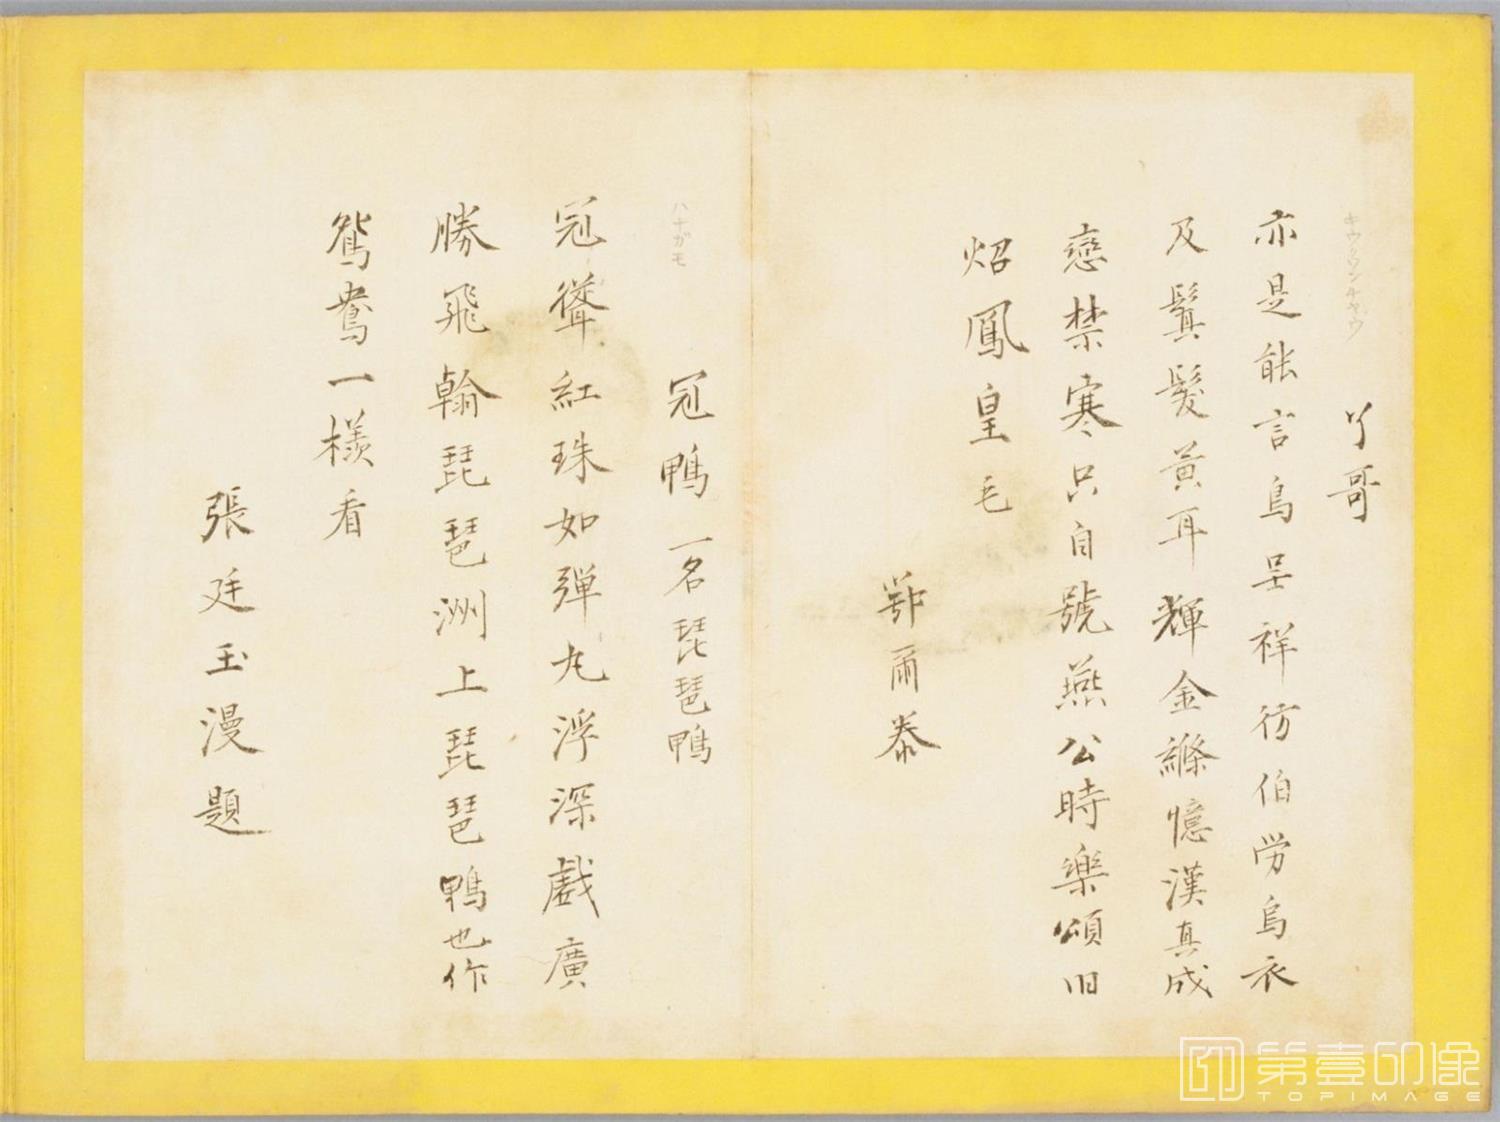 キウクワンチヤウ
丫哥
亦是能言鳥呈祥彷伯労烏衣
及鬒髮黄耳輝金縧憶漢真成
戀禁寒只自號燕公時樂頌旧
炤鳳皇毛
鄂爾泰
ハナガモ
冠鴨一名琵琶鴨
冠聳紅珠如弾丸浮深戯廣
勝飛翰琵琶洲上琵琶鴨也作
鴛鴦一樣看
張廷玉漫題
第壹印像
TOPIMAGE